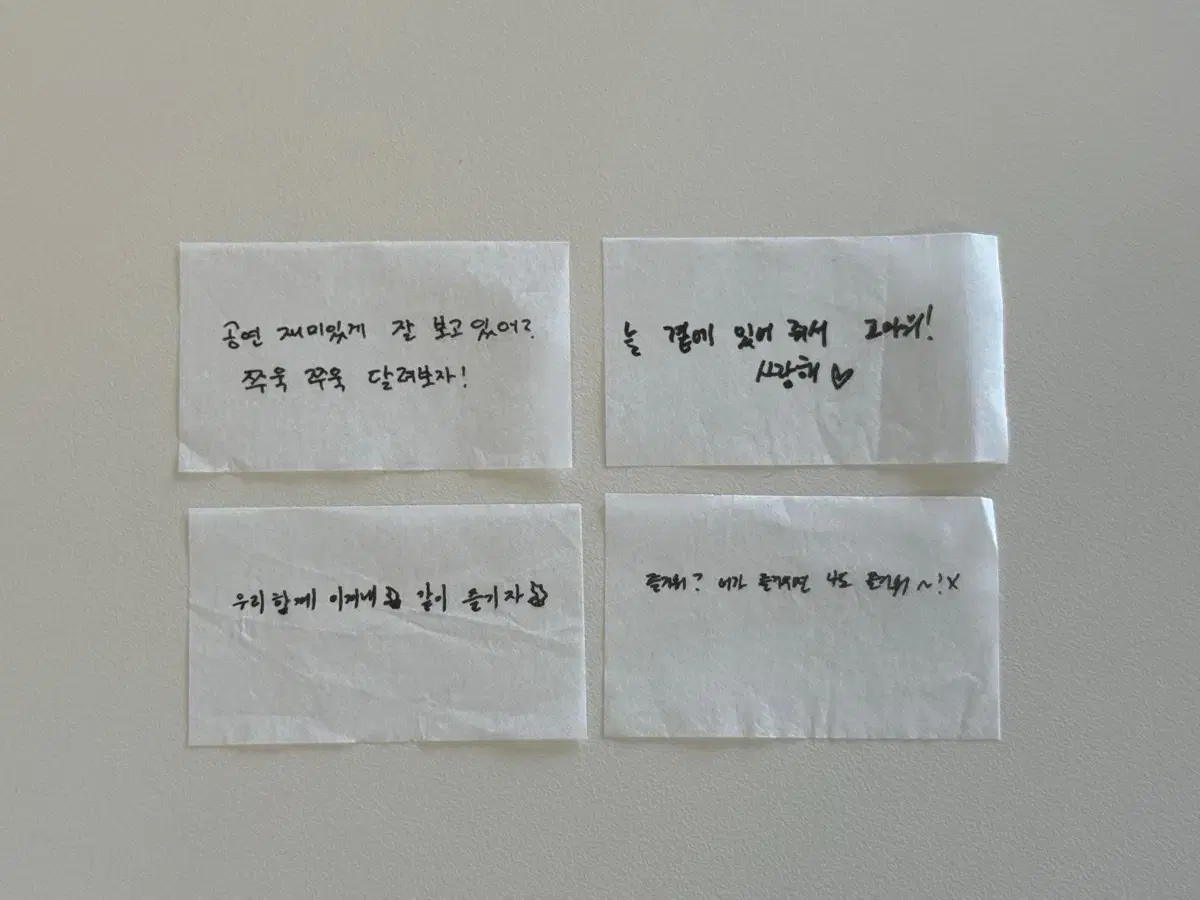 공연 재미있게 잘 보고 있어?
쭈욱 쭈욱 달려보자!
늘 곁에 있어 줘서 고마워!
사랑해♡
우리 함께 이겨내 같이 즐기자
즐거워? 너가 즐거우면 나도 즐거워~!X